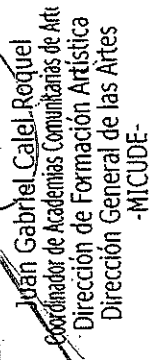 Juan Gabriel Calel Roquel
Coordinador de Academias Comunitarias de Arte
Dirección de Formación Artística
Dirección General de las Artes
-MICUDE-